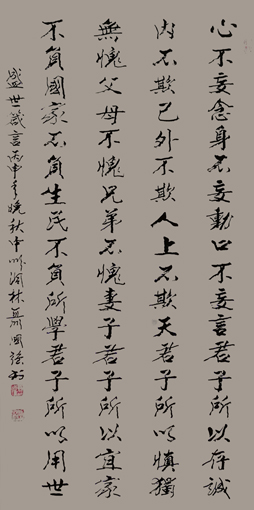 心不妄念身不妄動口不妄言君子所以存誠
内不欺己外不欺人上不欺天君子所以慎獨
無愧父母不愧兄弟不愧妻子君子所以宜家
不負國家不負生民不負所學君子所以用世
盛世箴言丙申年晚秋中